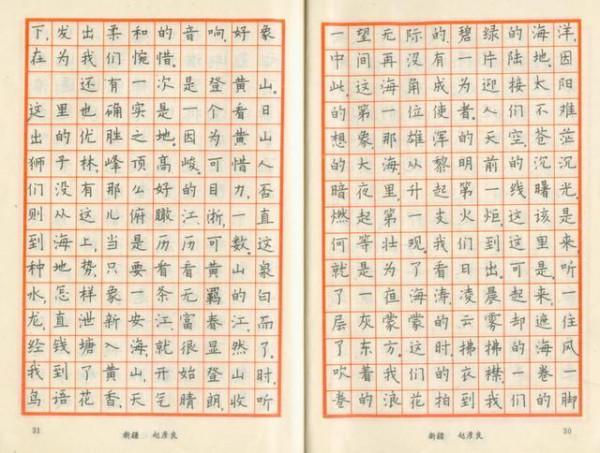 一望无际的碧绿的海洋，
中间再没有一片陆地。因
此，这海角成为迎接太阳
的第一位使者。人们不难
想象，那雄浑的天空，苍茫
的大海，从黎明前的沉沉
暗夜里升起第一线曙光，
燃起第一支火炬，这该是
何等壮观。我们到这里来
就是为了看日出。可是听
了一夜海涛，凌晨起来，一
层灰蒙蒙的云雾却遮住
了东方。这时，拂拂的海风
吹着我们的衣襟，一卷一
卷的浪花拍到我们的脚
新疆 赵彦良
30
下，发出柔和的音响，好象
在为我们惋惜。
还有一次是登黄山。
这里也确实是一个看日
出的优胜之地。因为黄山
狮子林，峰顶高峻。可惜人
们没有那么好的目力，否
则从这儿俯瞰江、浙，一直
到海上，当是历历可数。这
种地势，只要看看黄山泉
水，怎样象一条无羁的白
龙，直泄新安江、富春江，而
经钱塘入海，就很显然了。
我到了黄山，开始登山时，
鸟语花香，天气晴朗，收听
新疆 赵彦良
31